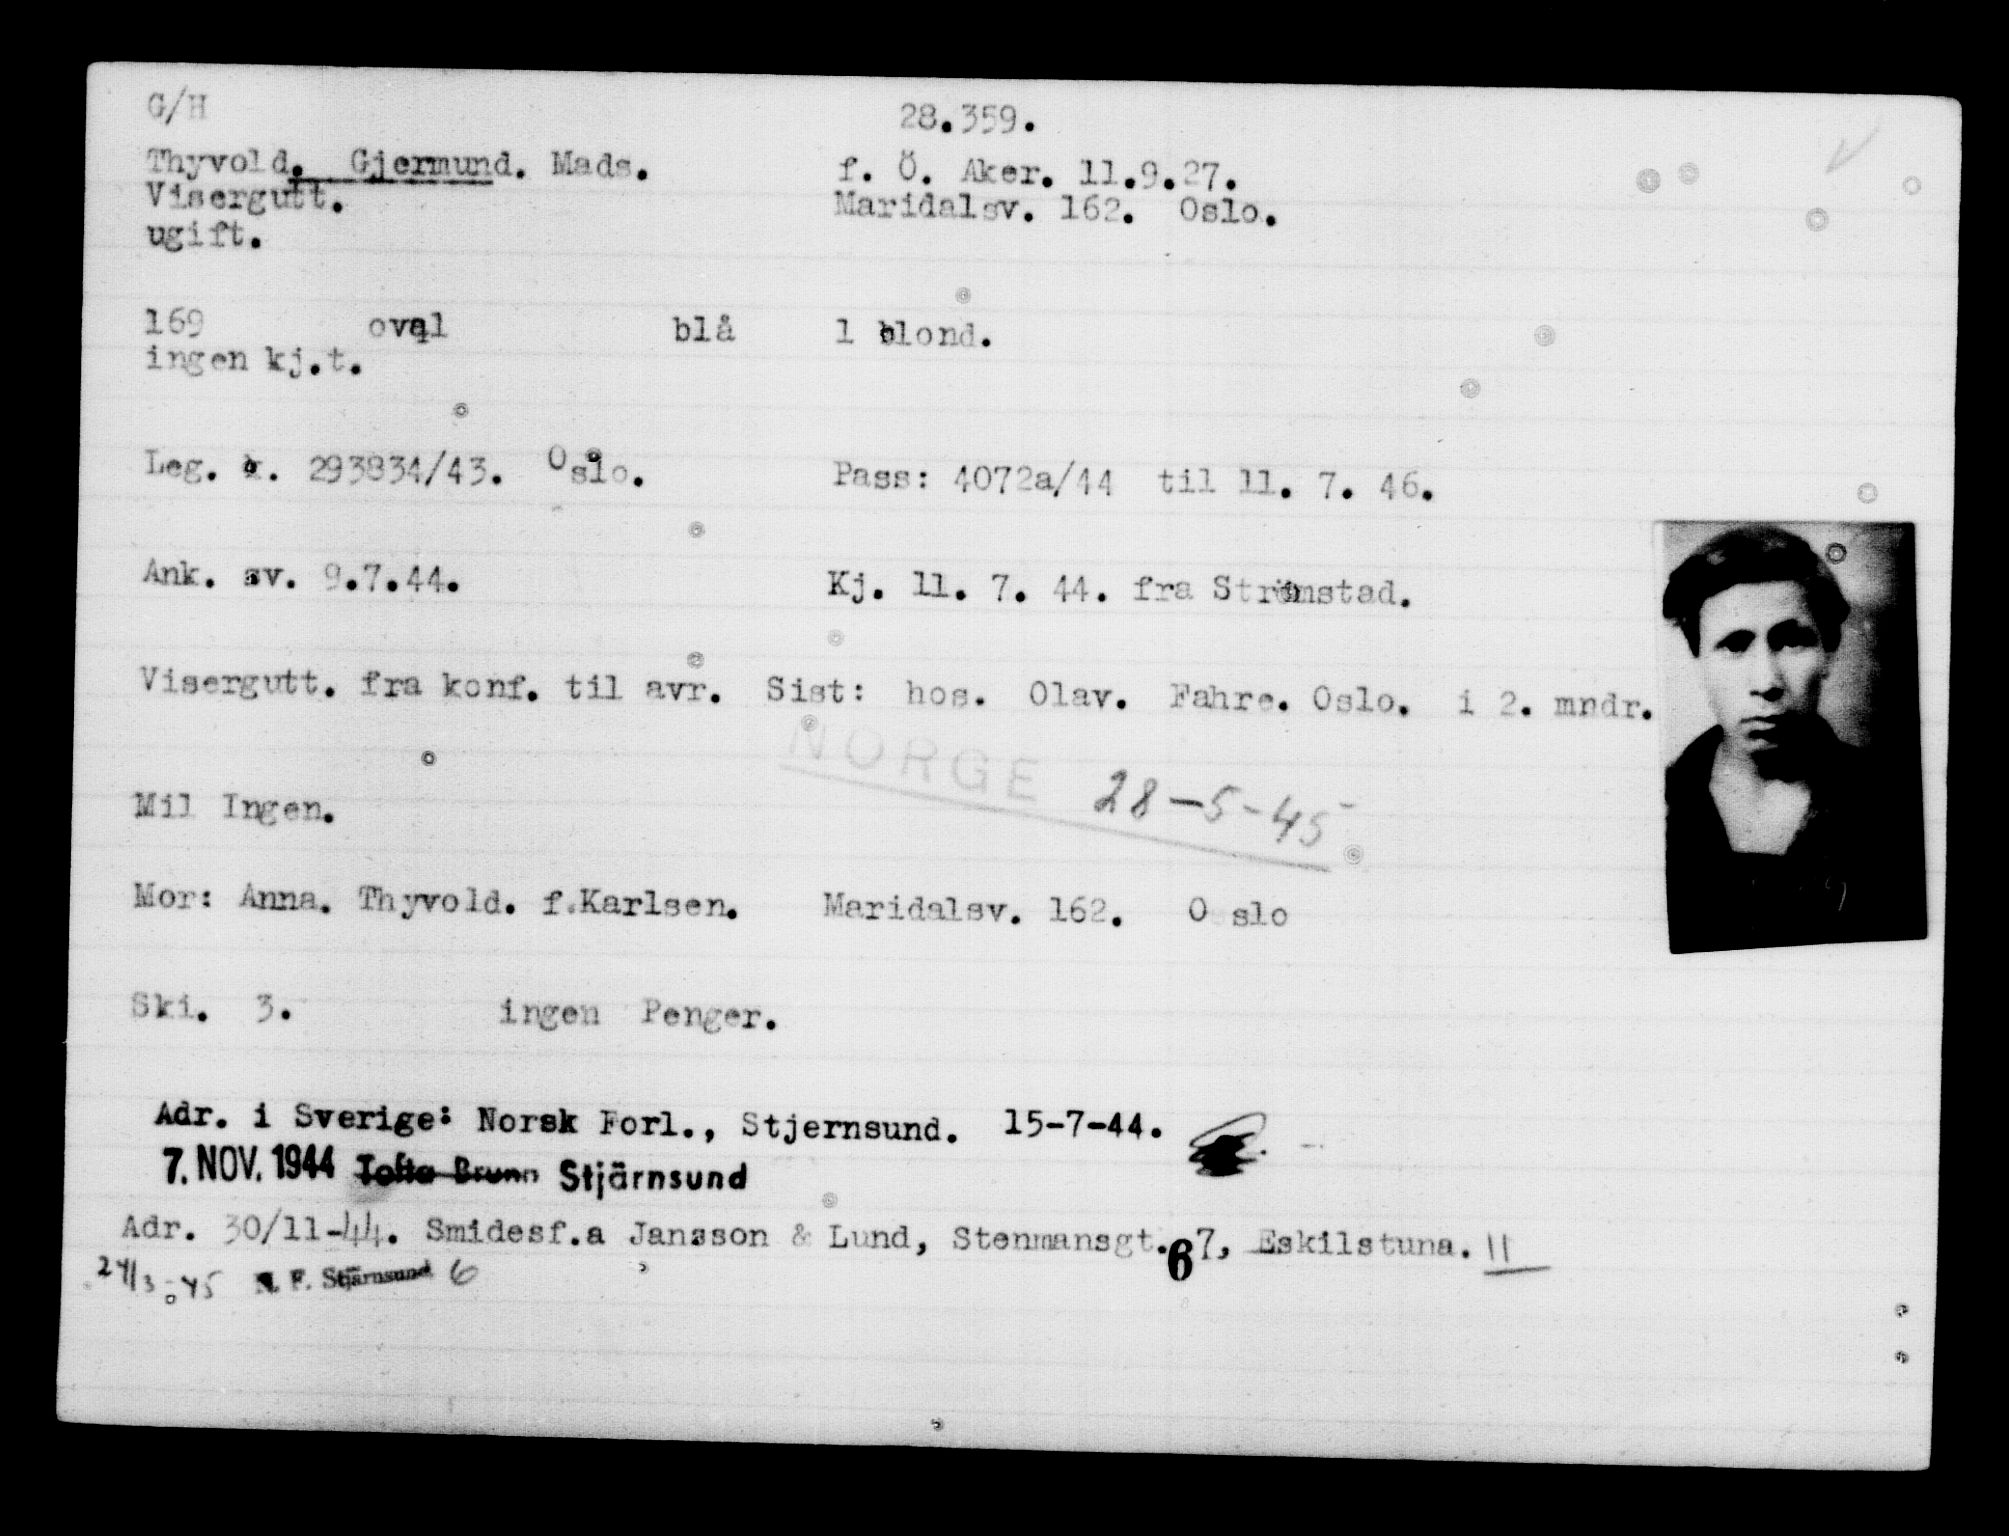 G/H 28.359.
Thyvold. Gjermund. Mads. f. Ö. Aker. 11.9.27.
Visergutt. Maridalsv. 162. Oslo.
ugift.
169 oval blå l blond.
ingen kj.t.
Leg. k. 293834/43. Oslo. Pass: 4072a/44 til 11. 7. 46.
Ank. sv. 9.7.44. Kj. 11. 7. 44. fra Strömstad.
Visergutt. fra konf. til avr. Sist: hos. Olav. Fahre. Oslo. i 2. mndr.
NORGE 28-5-45
Mil Ingen.
Mor: Anna. Thyvold. f.Karlsen. Maridalsv. 162. O slo
Ski. 3. ingen Penger.
Adr. i Sverige: Norsk Forl., Stjernsund. 15-7-44.
7. NOV. 1944 Tofta Brunn Stjärnsund
Adr. 30/11-44. Smidesf.a Jansson & Lund, Stenmansgt. 67, Eskilstuna. 11
24/3-45 N. F. Stjärnsund 6